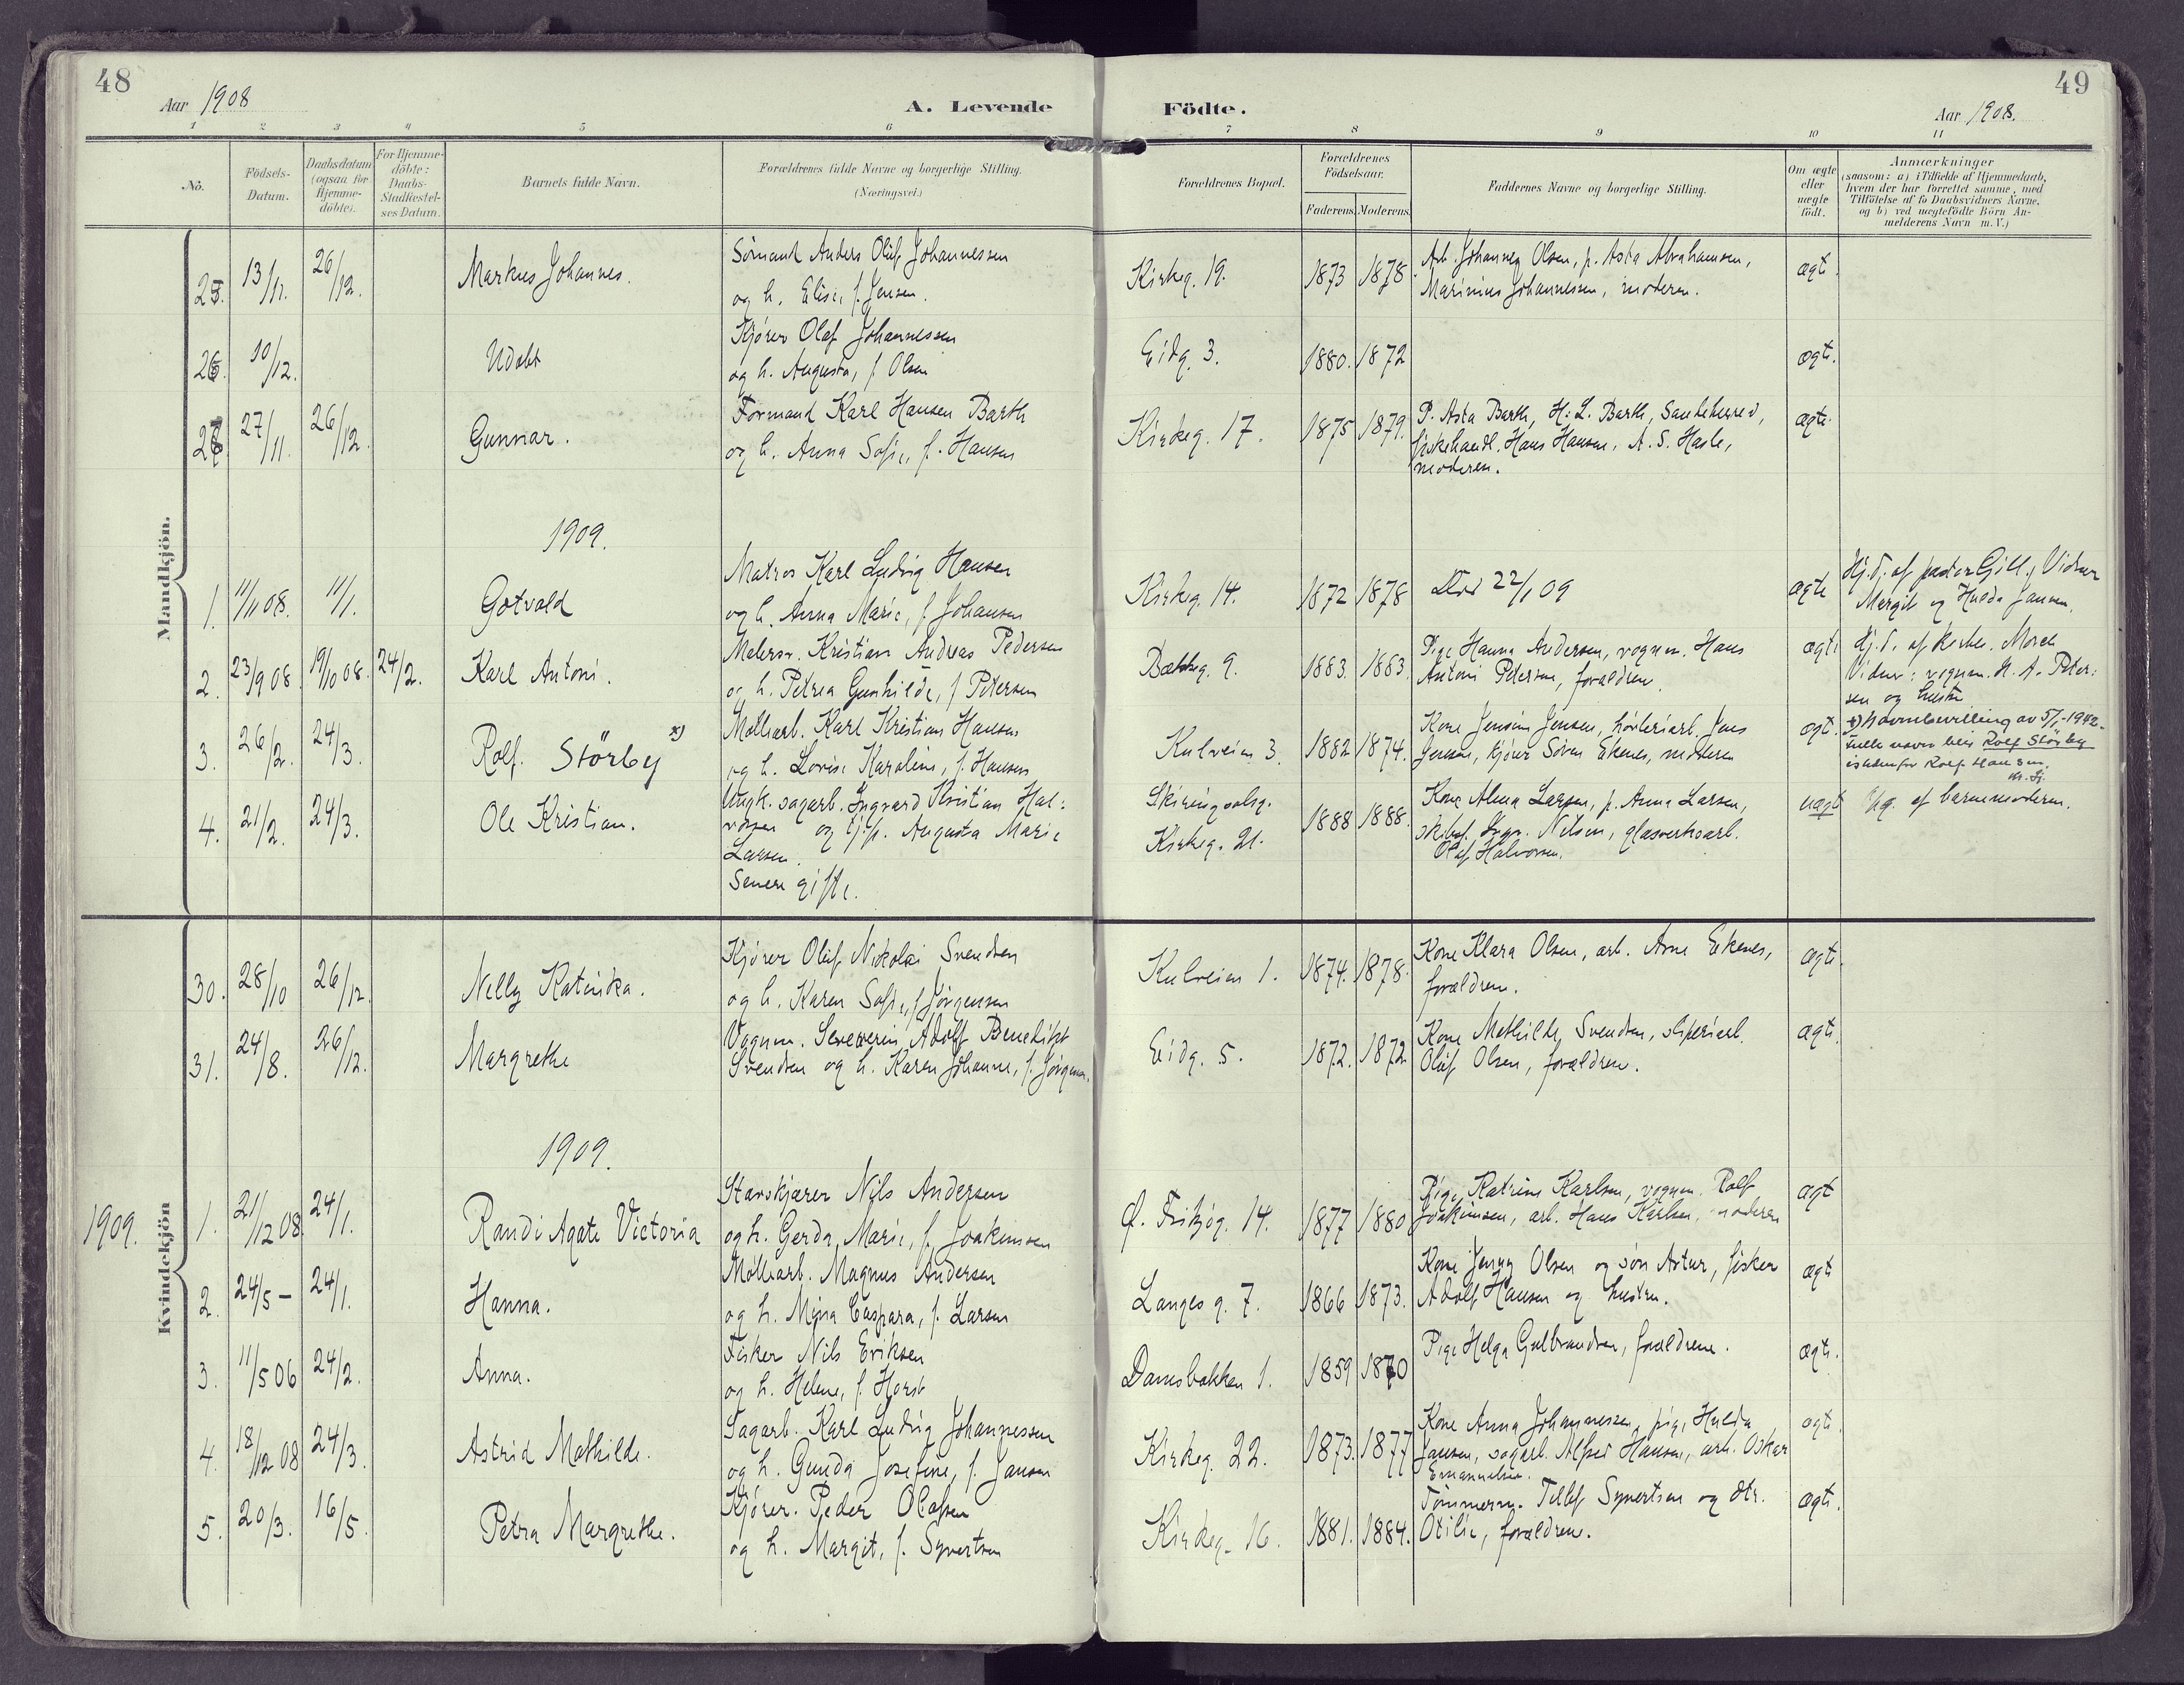 48
Aar 1908
A. Levende
1 2 3 4 5 6
Nö.
Födsels-Datum.
Daabsdatum (ogsaa for Hjemme-döbte).
For Hjemme-döbte: Daabs-Stadfæstel-ses Datum.
Barnets fulde Navn.
Forældrenes fulde Navne og borgerlige Stilling.
(Næringsvei.)
Födte.
49
Aar 1908.
7 8 9 10 11
Forældrenes Bopæl.
Forældrenes Födselsaar.
Faderens. Moderens.
Faddernes Navne og borgerlige Stilling.
Om ægte eller uægte födt.
Anmærkninger
(saasom: a) i Tilfælde af Hjemmedaab,
hvem der har forrettet samme, med
Tilföielse af to Daabsvidners Navne,
og b) ved uægtefödte Börn An-
melderens Navn m. V.)
Mandkjön.
25. 13/11. 26/12. Markus Johannes.
Sømand Anders Oluf Johannessen
og h. Elise, f. Jensen.
Kirkeg. 19. 1873 1878.
Arb. Johannes Olsen, p. Asta Abrahamsen,
Marinius Johannessen, moderen.
ægte.
26. 10/12. Udøbt
Kjører Olaf Johannessen
og h. Augusta, f. Olsen
Eidg. 3. 1880. 1872
ægte.
27. 27/11. 26/12. Gunnar.
Formand Karl Hansen Barth
og h. Anna Sofie, f. Hansen
Kirkeg. 17. 1875 1879.
P. Asta Barth, H. L. Barth, Sandeherred,
fiskehandl. Hans Hansen, A. S. Hasle,
moderen.
ægte.
1909.
1. 11/11 08. 11/1. Gotvald
Matros Karl Ludvig Hansen
og h. Anna Marie, f. Johansen
Kirkeg. 14. 1872 1878
Død 22/1 09
ægte
Hj. d. af pastor Gill, Vidner
Margit og Hulda Jansen.
2. 23/9 08. 19/10 08. 24/2. Karl Antoni.
Malersv. Kristian Andreas Pedersen
og h. Petrea Gunhilde, f. Petersen
Bækkeg. 9. 1883. 1883.
Pige Hanna Andersen, vognm. Hans
Antoni Petersen, forældrene.
ægte
Hj. d. af kirkes. Moren
Vidner: vognm. H. A. Peter-
sen og hustru
3. 26/2. 24/3. Rolf. Störby *)
Møllearb. Karl Kristian Hansen
og h. Lovise Karoline, f. Hansen
Kulveien 3. 1882 1874.
Kone Jensine Jensen, høvleriarb. Jens
Jensen, kjører Søren Ekenes, moderen
ægt.
*) Navnebevilling av 5/1-1942-
fulle navn blir Rolf Störby
istedenfor Rolf Hansen.
4. 21/2. 24/3. Ole Kristian.
Ungk. sagarb. Ingvard Kristian Hal-
vorsen og tj.p. Augusta Marie
Larsen.
Senere gifte.
Skiringsalsg.
Kirkeg. 21. 1888 1888.
Kone Alma Larsen, p. Anna Larsen,
Ingv. Nilsen, glasverksarb.
Olaf Halvorsen.
uægt
Opg. af barnemoderen.
Kvindekjön
30. 28/10 26/12. Nelly Katinka.
Kjører Oluf Nikolai Svendsen
og h. Karen Sofie, f. Jørgensen
Kulveien 1. 1874. 1878.
Kone Klara Olsen, arb. Arne Ekenes,
forældrene.
ægte.
31. 24/8. 26/12. Margrethe
Vognm. Severin Adolf Benedikt
Svendsen og h. Karen Johanne, f. Jørgensen.
Eidg. 5. 1872. 1872
Kone Mathilde Svendsen, sliperiarb.
Oluf Olsen, forældrene.
ægte.
1909.
1909. 1. 21/12 08. 24/1. Randi Agate Victoria
Stavskjærer Nils Andersen
og h. Gerda Marie, f. Joakimsen
Ø. Fritzøg. 14. 1877 1880
Pige Katrine Karlsen, vognm. Rolf
Joakimsen, arb. Hans Karlsen, moderen
ægt
2. 24/5 – 24/1. Hanna.
Møllearb. Magnus Andersen
og h. Mina Caspara, f. Larsen
Langesg. 7. 1866 1873.
Kone Jenny Olsen og søn Artur, fisker
Adolf Hansen og hustru.
ægte
3. 11/5 06 24/2. Anna.
Fisker Nils Eriksen
og h. Helene, f. Horst
Damsbakken 1. 1859 1870
Pige Helga Gulbrandsen, forældrene.
ægte.
4. 18/12 08 24/3. Astrid Mathilde.
Sagarb. Karl Ludvig Johannessen
og h. Gunda Josefine, f. Jansen
Kirkeg. 22. 1873. 1877
Kone Anna Johannessen, pige Hulda
Jansen, sagarb. Alfred Hansen, arb. Oskar
Emanuelsen.
ægte.
5. 20/3. 16/5. Petra Margrethe.
Kjører. Peder Olafsen
og h. Margit, f. Syvertsen
Kirkeg. 16. 1881. 1884.
Tømmerm. Tellef Syvertsen og dtr.
Otilie, forældrene.
ægte.